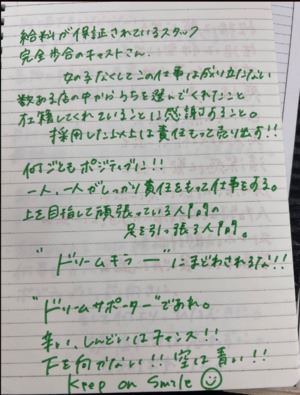 給料が保証されているスタッフ
完全歩合のキャストさん
女の子なくしてこの仕事は成り立たない
数ある店の中からうちを選んでくれたこと
在籍してくれていることに感謝すること。
採用した以上は責任もって売り出す!!
何ごともポジティブに!!
一人、一人がしっかり責任をもって仕事をする。
上を目指して頑張っている人間の
足を引っ張る人間。
"ドリームキラー"にまどわされるな!!
"ドリームサポーター"であれ。
辛い、しんどいはチャンス!!
下を向かない!! 空は青い!!
Keep on smile